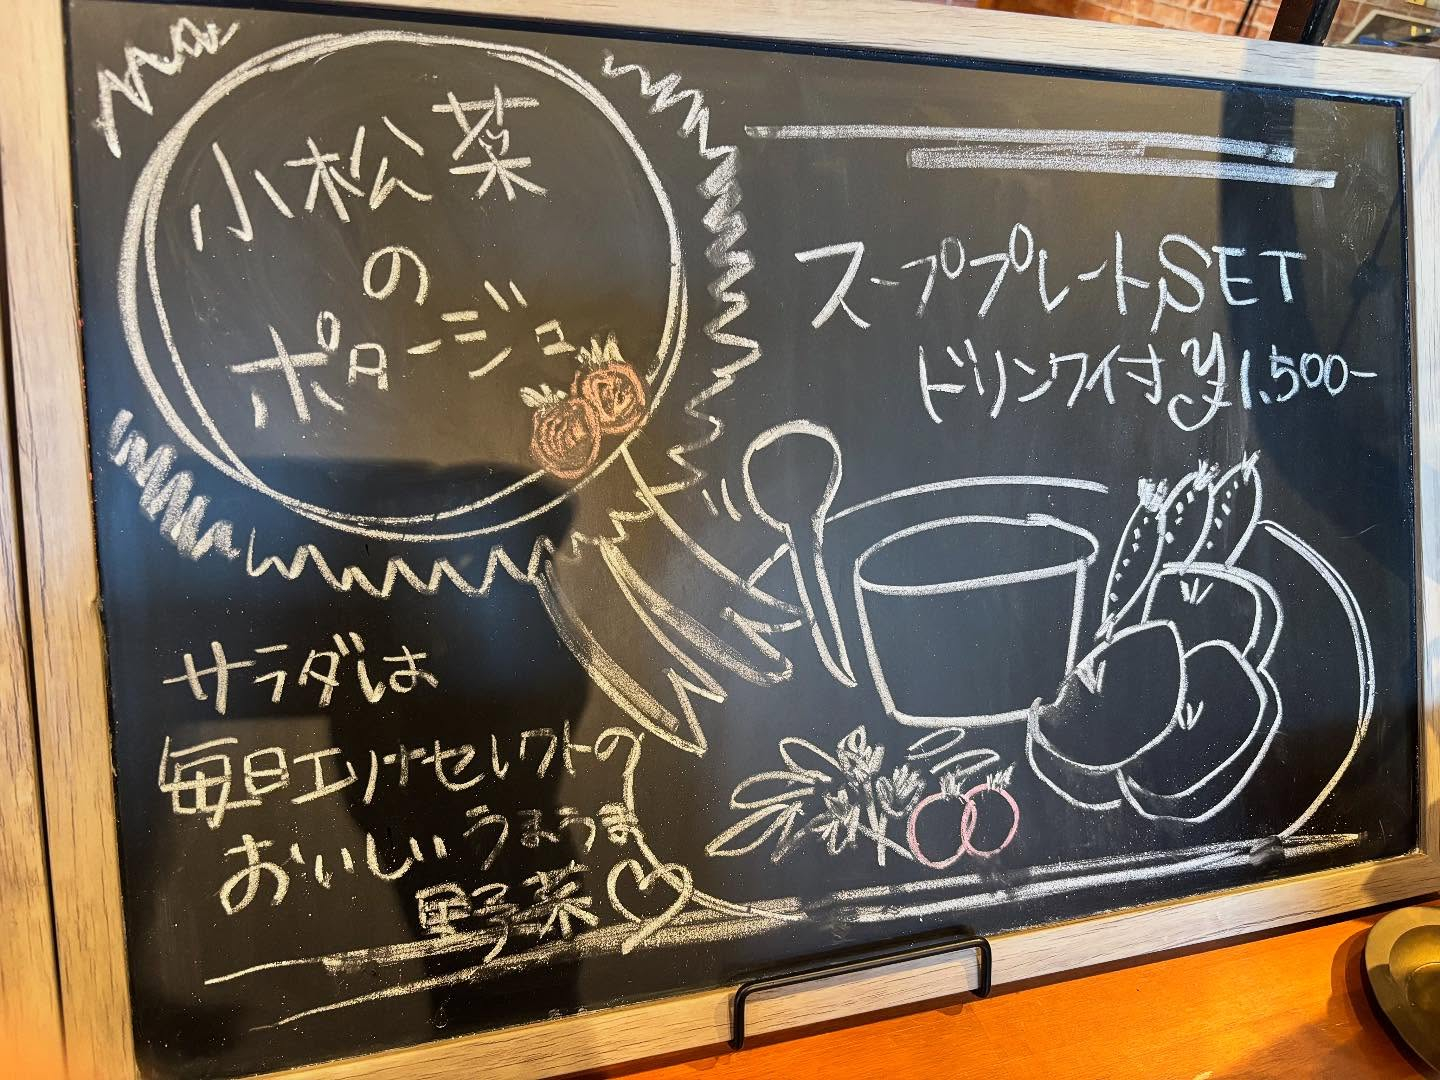 小松菜
の
ポタージュ
スーププレートSET
ドリンク付 ¥1,500-
サラダは
毎日エリナセレクトの
おいしいうまうま
野菜